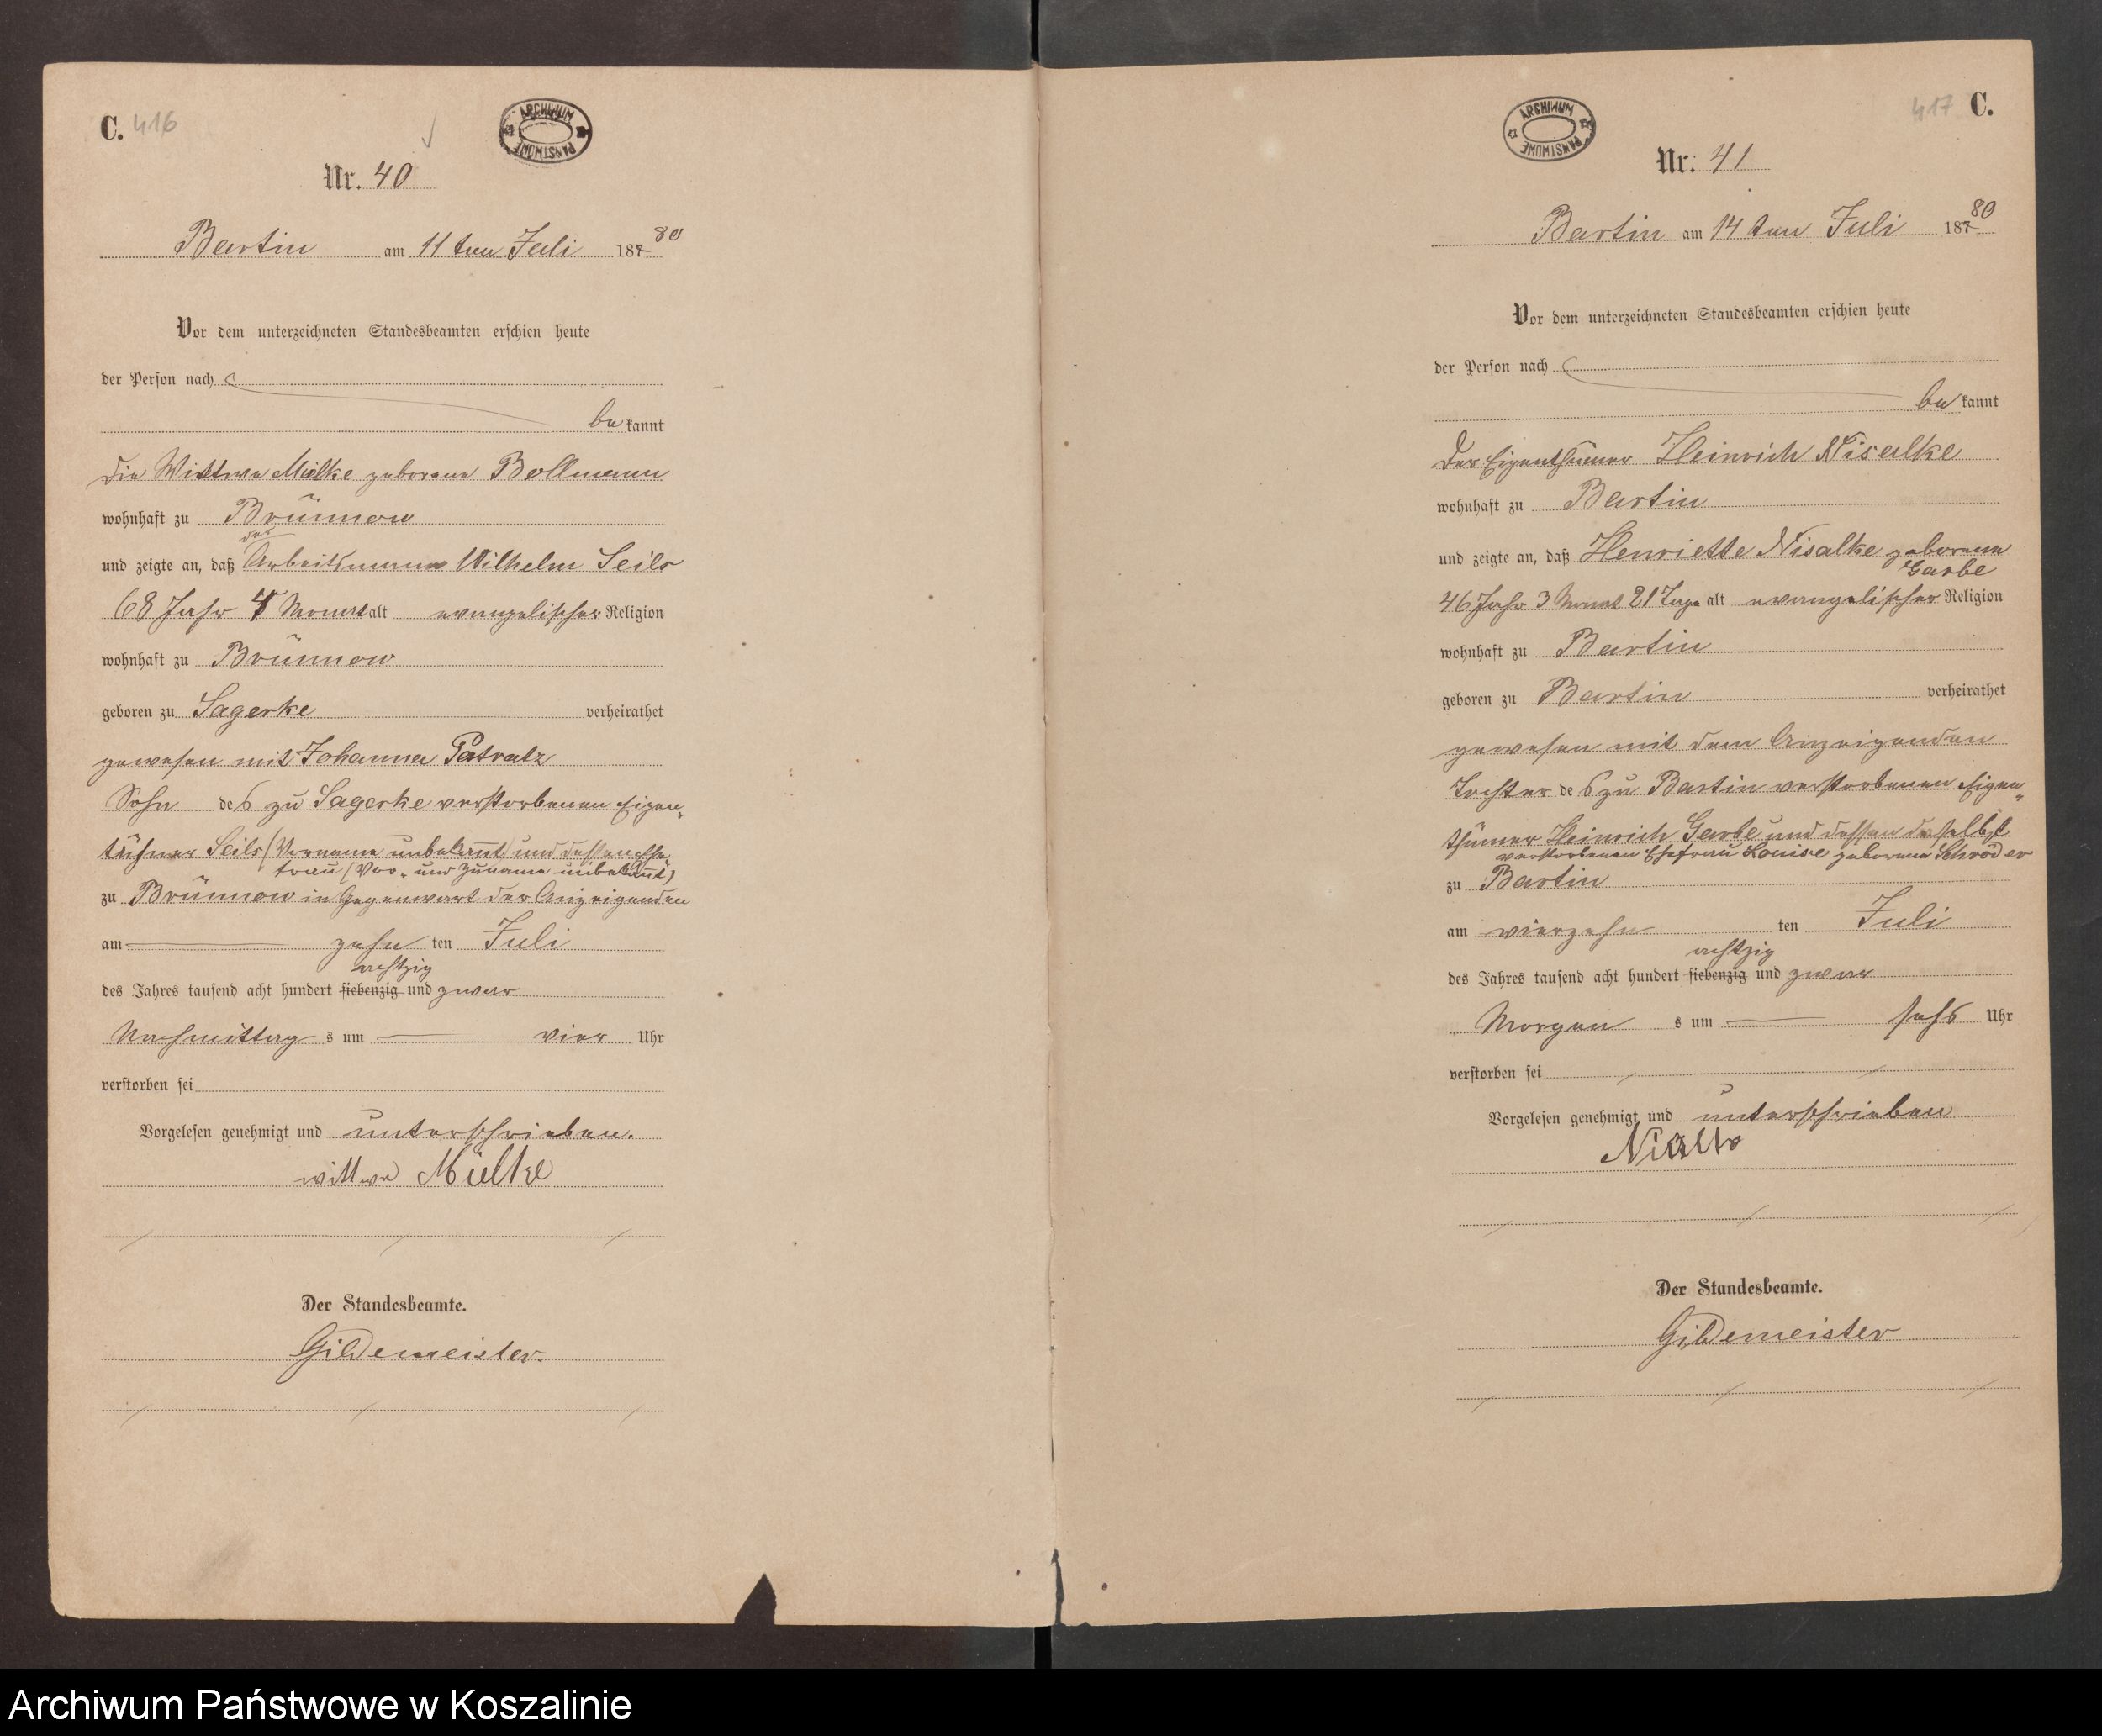 C. 416
ARCHIWUM PAŃSTWOWE
Nr. 40
Bartin am 11 ten Juli 1880
Vor dem unterzeichneten Standesbeamten erschien heute
der Person nach
be kannt
die Wittwe Mielke geborene Bollmann
wohnhaft zu Brünnow
der
und zeigte an, daß Arbeitsmann Wilhelm Seils
68 Jahr 4 Monat alt evangelischer Religion
wohnhaft zu Brünnow
geboren zu Sagerke verheirathet
gewesen mit Johanna Patratz
Sohn des zu Sagerke verstorbenen Eigen-
thümer Seils (Vorname unbekannt) und dessen Ehe-
frau (Vor- und Zuname unbekannt)
zu Brünnow in Gegenwart der Anzeigenden
am zehn ten Juli
achtzig
des Jahres tausend acht hundert siebenzig und zwar
Nachmittag s um vier Uhr
verstorben sei
Vorgelesen genehmigt und unterschrieben.
wittwe Mielke
Der Standesbeamte.
Gildemeister.
417 C.
ARCHIWUM PAŃSTWOWE
Nr. 41
Bartin am 14 ten Juli 1880
Vor dem unterzeichneten Standesbeamten erschien heute
der Person nach
be kannt
Der Eigenthümer Heinrich Nisalke
wohnhaft zu Bartin
und zeigte an, daß Henriette Nisalke geborene
Garbe
46 Jahr 3 Monat 21 Tage alt evangelischer Religion
wohnhaft zu Bartin
geboren zu Bartin verheirathet
gewesen mit dem Anzeigenden
Tochter des zu Bartin verstorbenen Eigen-
thümer Heinrich Garbe und dessen daselbst
verstorbenen Ehefrau Louise geborene Schröder
zu Bartin
am vierzehn ten Juli
achtzig
des Jahres tausend acht hundert siebenzig und zwar
Morgen s um sechs Uhr
verstorben sei
Vorgelesen genehmigt und unterschrieben
Der Standesbeamte.
Gildemeister
Archiwum Państwowe w Koszalinie